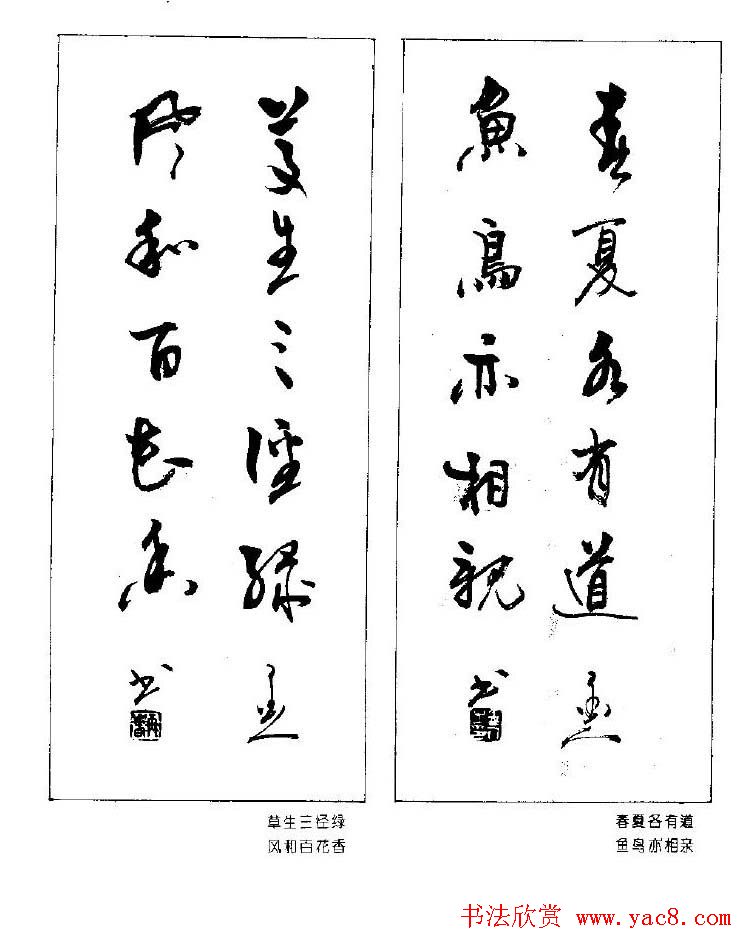 春夏各有道
魚鳥亦相親
书
草生三徑綠
風和百花香
书
春夏各有道
鱼鸟亦相亲
草生三径绿
风和百花香
书法欣赏 www.yac8.com